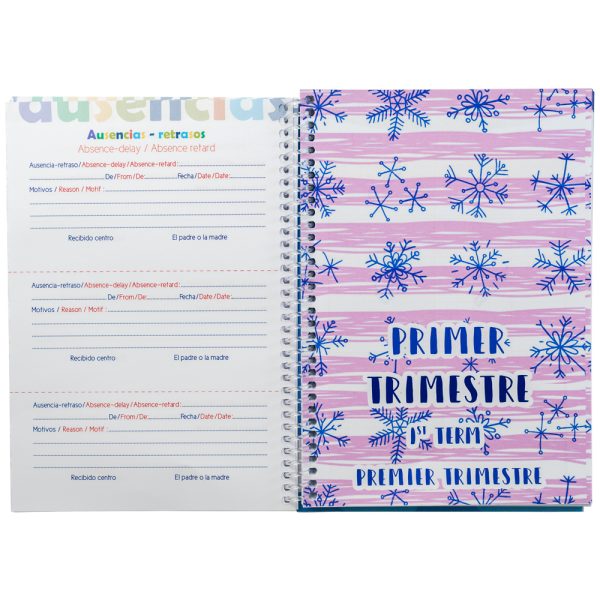 ausencias
Ausencias - retrasos
Absence-delay / Absence retard
Ausencia-retraso/Absence-delay/Absence-retard:
De/From/De: Fecha/Date/Date:
Motivos / Reason / Motif :
Recibido centro El padre o la madre
Ausencia-retraso/Absence-delay /Absence-retard :
De/From/De: Fecha/Date/Date:
Motivos / Reason / Motif :
Recibido centro El padre o la madre
Ausencia-retraso/Absence-delay /Absence-retard :
De/From/De: Fecha/Date/Date:
Motivos / Reason / Motif :
Recibido centro El padre o la madre
PRIMER
TRIMESTRE
1ST TERM
PREMIER TRIMESTRE